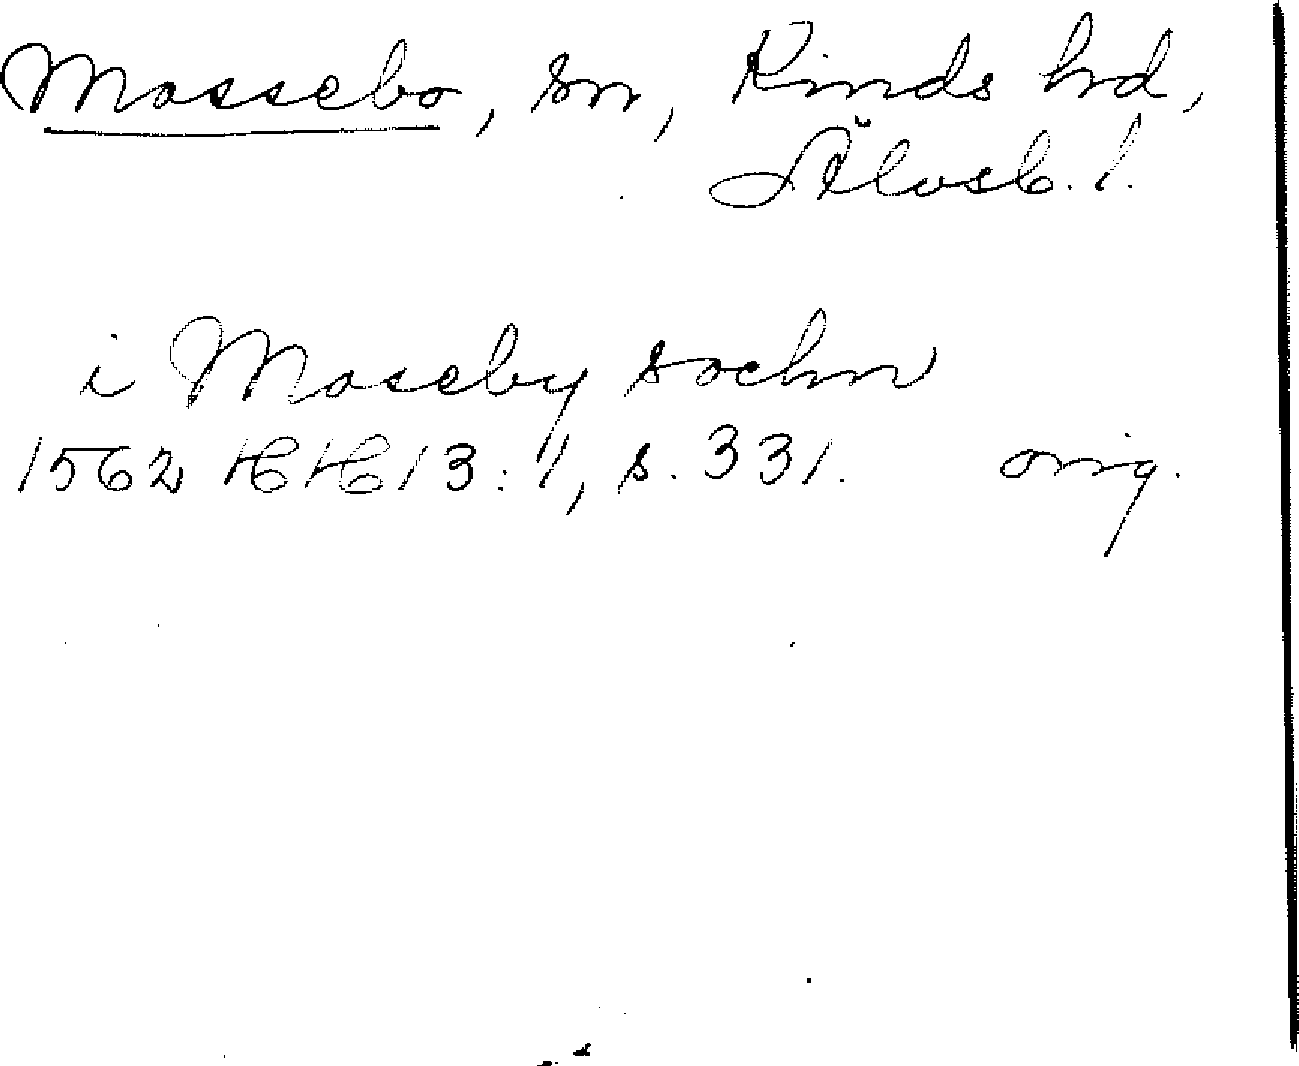 Mossebo, sn, Kinds hrd,
Älvsb. l.
i Moseby sochn
1562 HH 13:1, s. 331. orig.